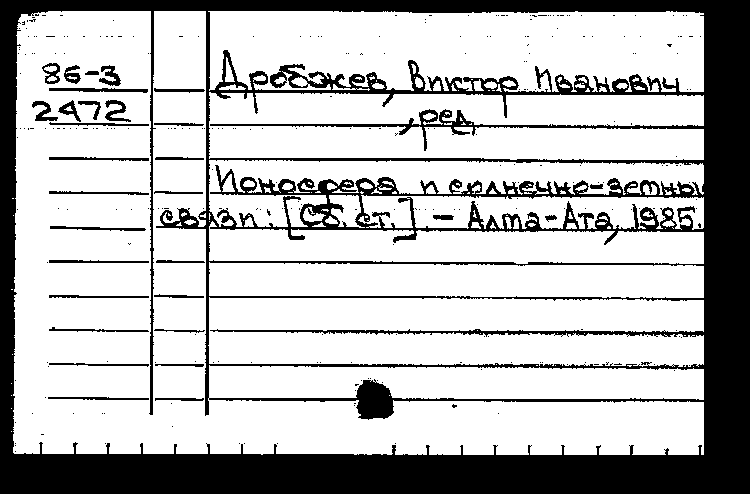 86-3
Дробжев, Виктор Иванович
2472
, ред.
Ионосфера и солнечно-земны
связи: [Сб. ст.]. – Алма-Ата, 1985.